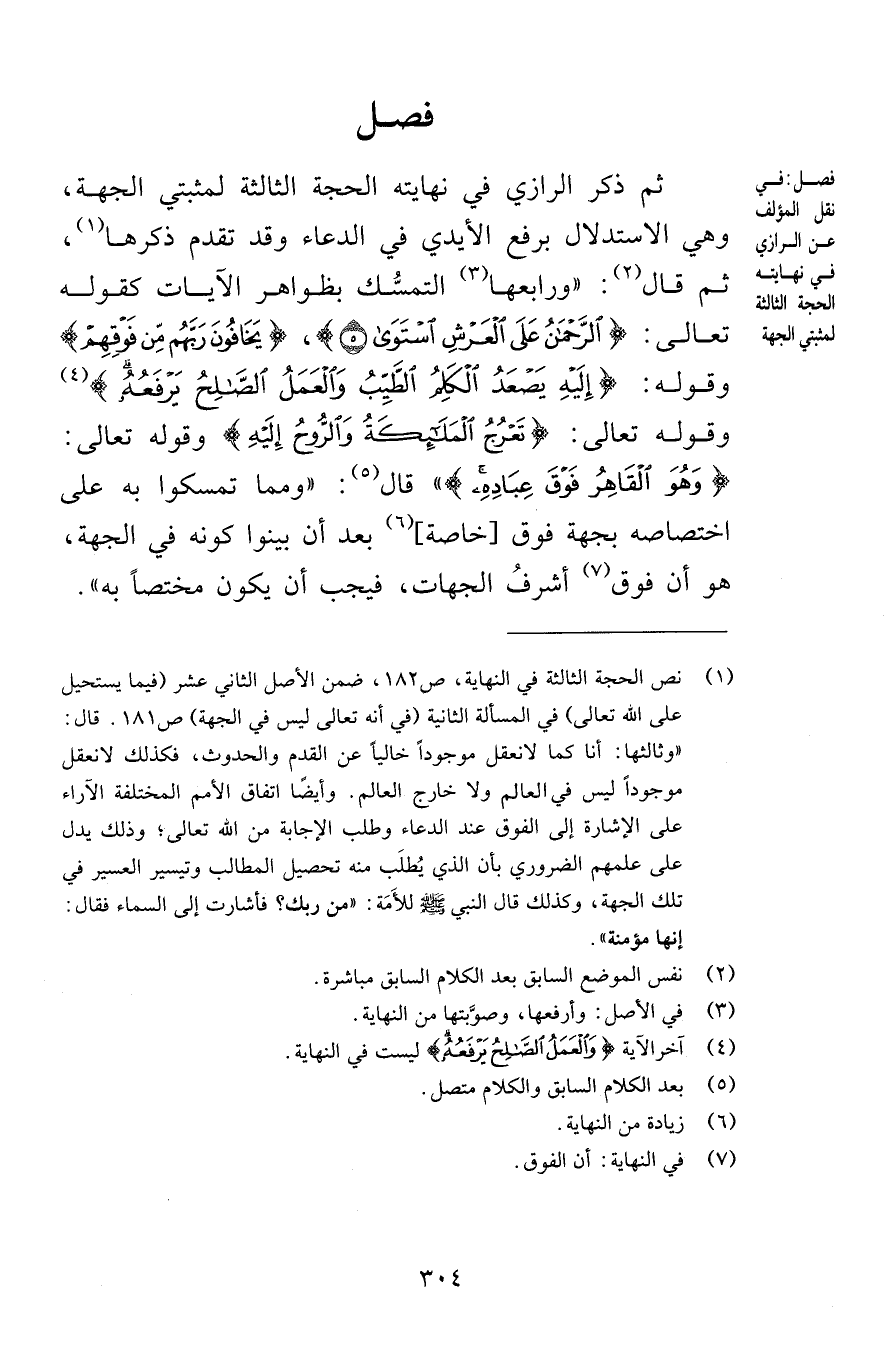 فصـل
ثم ذكر الرازي في نهايته الحجة الثالثة لمثبتي الجهـة،
وهي الاستدلال برفع الأيدي في الدعاء وقد تقدم ذكرهـا(١)،
ثـم قـال(٢): «ورابعهـا(٣) التمسُّـك بظـواهـر الآيـات كقولـه
تعـالـى: ﴿ ٱلرَّحْمَٰنُ عَلَى ٱلْعَرْشِ ٱسْتَوَىٰ ٥ ﴾، ﴿ يَخَافُونَ رَبَّهُم مِّن فَوْقِهِمْ ﴾
وقـولـه: ﴿ إِلَيْهِ يَصْعَدُ ٱلْكَلِمُ ٱلطَّيِّبُ وَٱلْعَمَلُ ٱلصَّٰلِحُ يَرْفَعُهُۥۚ ﴾(٤)
وقـولـه تعالى: ﴿ تَعْرُجُ ٱلْمَلَٰٓئِكَةُ وَٱلرُّوحُ إِلَيْهِ ﴾ وقوله تعالى:
﴿ وَهُوَ ٱلْقَاهِرُ فَوْقَ عِبَادِهِۦۚ ﴾» قال(٥): «ومما تمسكوا به على
اختصاصه بجهة فوق [خاصة](٦) بعد أن بينوا كونه في الجهة،
هو أن فوق(٧) أشرفُ الجهات، فيجب أن يكون مختصاً به».
فصـل: فـي
نقل المؤلف
عـن الـرازي
فـي نهـايتـه
الحجة الثالثة
لمثبتي الجهة
(١) نص الحجة الثالثة في النهاية، ص١٨٢، ضمن الأصل الثاني عشر (فيما يستحيل
على الله تعالى) في المسألة الثانية (في أنه تعالى ليس في الجهة) ص١٨١. قال:
«وثالثها: أنا كما لانعقل موجوداً خالياً عن القدم والحدوث، فكذلك لانعقل
موجوداً ليس في العالم ولا خارج العالم. وأيضًا اتفاق الأمم المختلفة الآراء
على الإشارة إلى الفوق عند الدعاء وطلب الإجابة من الله تعالى؛ وذلك يدل
على علمهم الضروري بأن الذي يُطلَب منه تحصيل المطالب وتيسير العسير في
تلك الجهة، وكذلك قال النبي ﷺ للأَمَة: «من ربك؟ فأشارت إلى السماء فقال:
إنها مؤمنة».
(٢) نفس الموضع السابق بعد الكلام السابق مباشرة.
(٣) في الأصل: وأرفعها، وصوَّبتها من النهاية.
(٤) آخر الآية ﴿ وَٱلْعَمَلُ ٱلصَّٰلِحُ يَرْفَعُهُۥۚ ﴾ ليست في النهاية.
(٥) بعد الكلام السابق والكلام متصل.
(٦) زيادة من النهاية.
(٧) في النهاية: أن الفوق.
٣٠٤